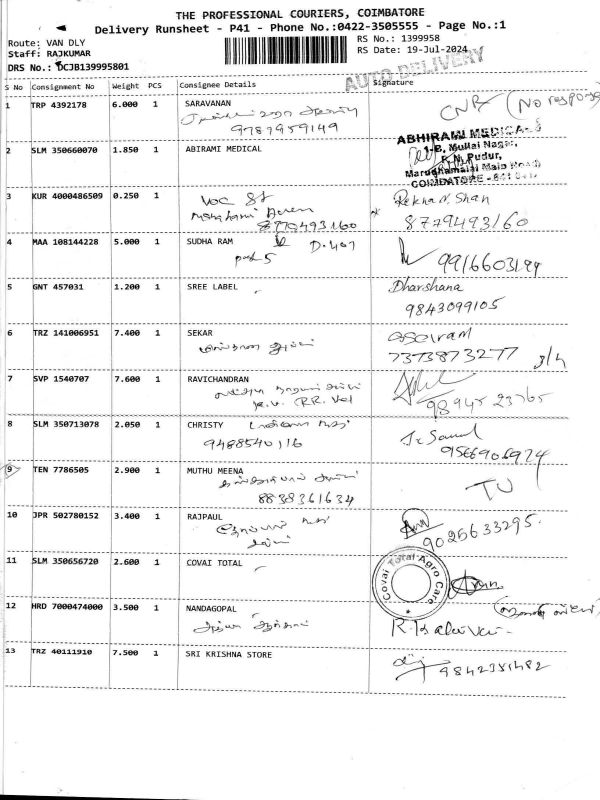 THE PROFESSIONAL COURIERS, COIMBATORE
Delivery Runsheet - P41 - Phone No.:0422-3505555 - Page No.:1
Route: VAN DLY
RS No.: 1399958
Staff: RAJKUMAR
RS Date: 19-Jul-2024
DRS No.: DCJB139995801
AUTO DELIVERY
S No Consignment No Weight PCS Consignee Details Signature
1 TRP 4392178 6.000 1 SARAVANAN
CNR (No response
9787959149
ABHIRAMI MEDICA
2 SLM 350660070 1.850 1 ABIRAMI MEDICAL
1-B, Mullai Nagar,
K.N. Pudur,
Marudhamalai Main Road
COIMBATORE - 641 041
3 KUR 4000486509 0.250 1 VOC St
Rekha N. Shah
8779493160
8779493160
4 MAA 108144228 5.000 1 SUDHA RAM D-407
5
9916603194
5 GNT 457031 1.200 1 SREE LABEL
Dharshana
9843099105
6 TRZ 141006951 7.400 1 SEKAR
7373873277
7 SVP 1540707 7.600 1 RAVICHANDRAN
K.V. RR.
8 SLM 350713078 2.050 1 CHRISTY
9488540116
9566906924
9 TEN 7786505 2.900 1 MUTHU MEENA
TU
8838361634
10 JPR 502780152 3.400 1 RAJPAUL
9025633295.
11 SLM 350656720 2.600 1 COVAI TOTAL
Covai Total Agro Care
12 HRD 7000474000 3.500 1 NANDAGOPAL
13 TRZ 40111910 7.500 1 SRI KRISHNA STORE
9842351482